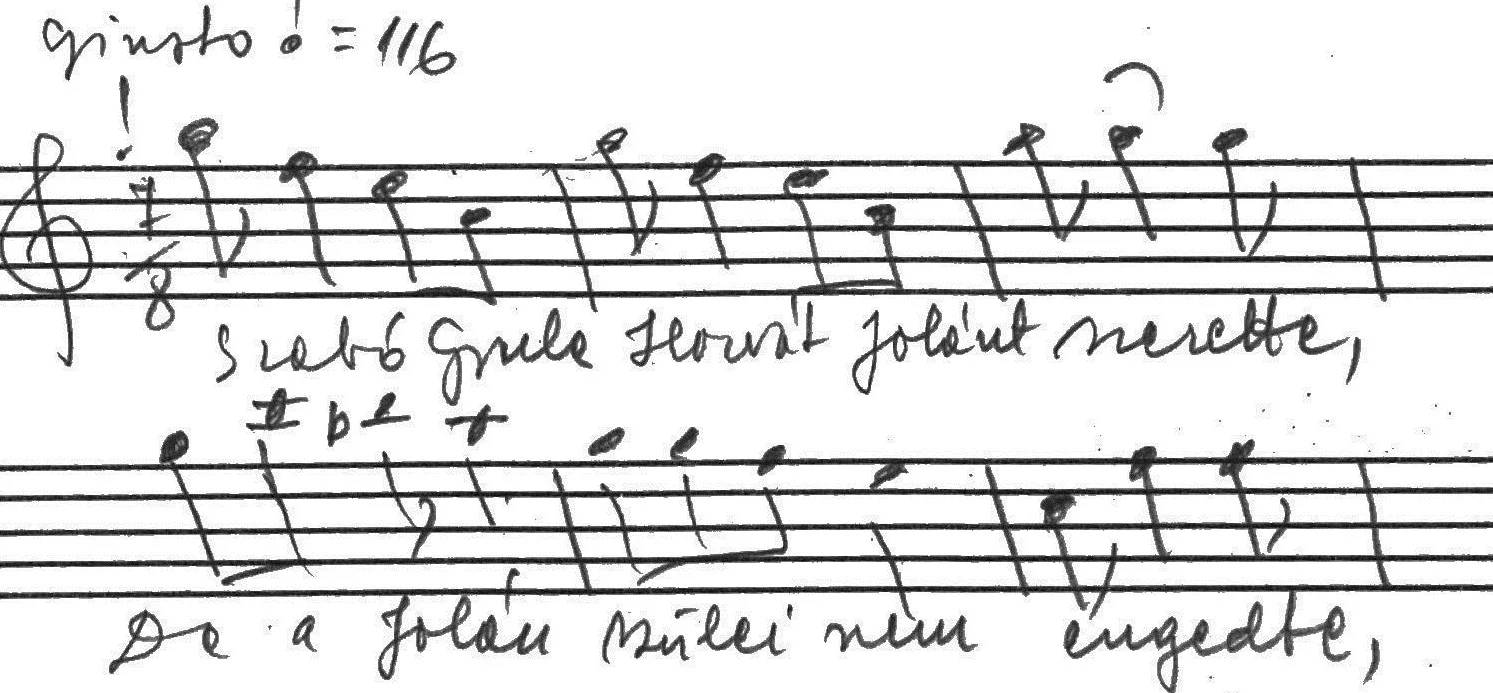 giusto = 116
7/8
Szabó Gyula Horvát Jolánt szerette,
De a Jolán szülei nem engedte,